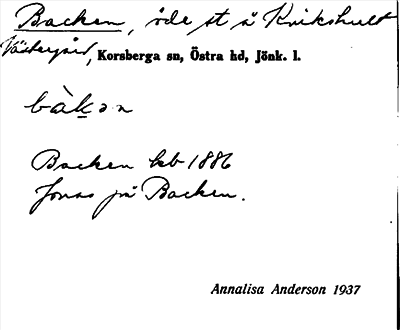 Backen, öde st å Kvikshult
Västergård, Korsberga sn, Östra hd, Jönk. l.
bàkən
Backen kb 1886
Jonas på Backen.
Annalisa Anderson 1937